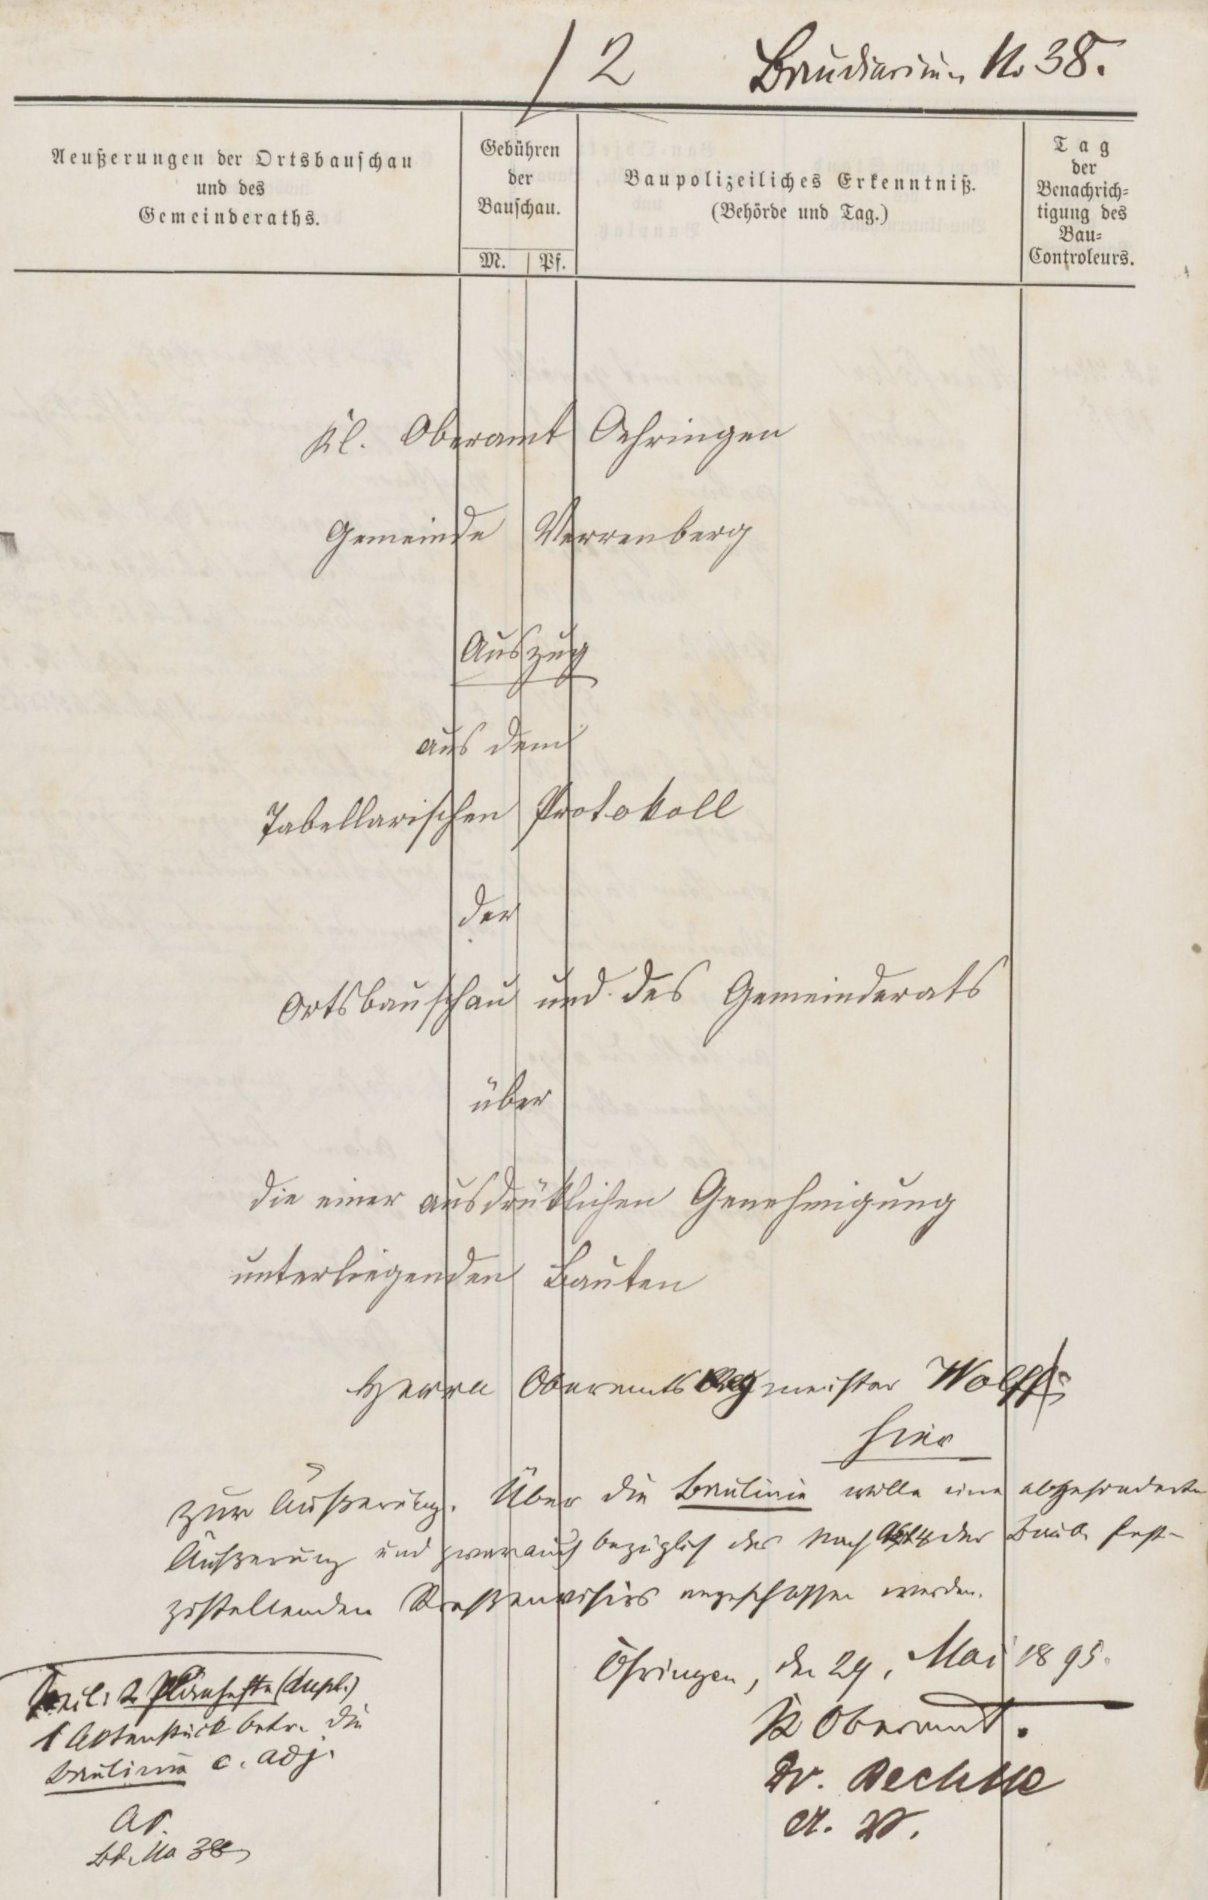 / 2 Baudiarium No 38.
Aeußerungen der Ortsbauschau
und des
Gemeinderaths.
Gebühren
der
Bauschau.
M. Pf.
Baupolizeiliches Erkenntniß.
(Behörde und Tag.)
Tag
der
Benachrich-
tigung des
Bau-
Controleurs.
Kl. Oberamt Oehringen
Gemeinde Verrenberg
Auszug
aus dem
Tabellarischen Protokoll
der
Ortsbauschau und des Gemeinderats
über
die einer ausdrüklichen Genehmigung
unterliegenden Bauten
Herrn Oberamts meister Wolff
hier
zur Äußerung. Über die Baulinie wolle eine abgesonderte
Äußerung und zwar auch bezüglich des nach der Bau fest-
zustellenden Straßenvisirs angeschlossen werden.
Öhringen, den 29. Mai 1895.
K Oberamt.
Dr.
A. V.
2 Planhefte (dupl.)
1 Aktenstück betr. die
Baulinie c. adj.
Bd. No 38